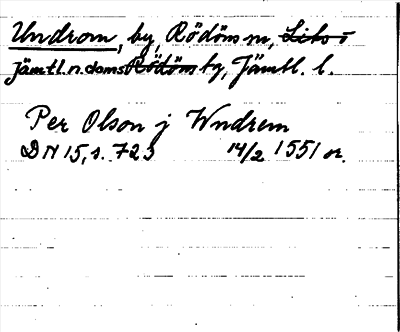 Undrom, by, Rödöns sn, Liks o
Jämtl. n. doms Rödöns tg, Jämtl. l.
Per Olson j Wndrem
DN 15, s. 723 14/2 1551 or.